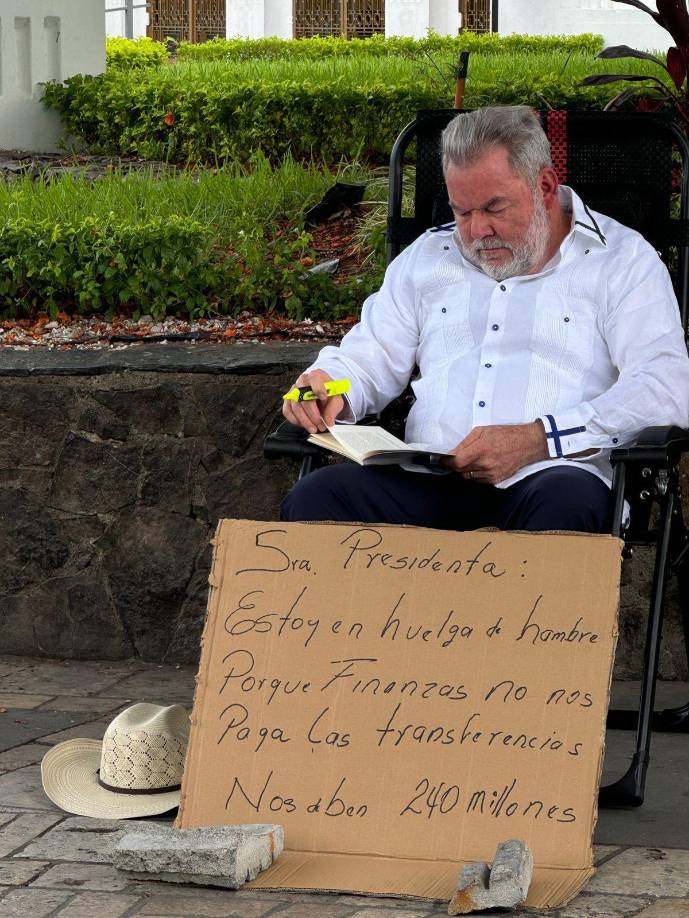 Sra. Presidenta:
Estoy en huelga de hambre
Porque Finanzas no nos
Paga las transferencias
Nos deben 240 millones